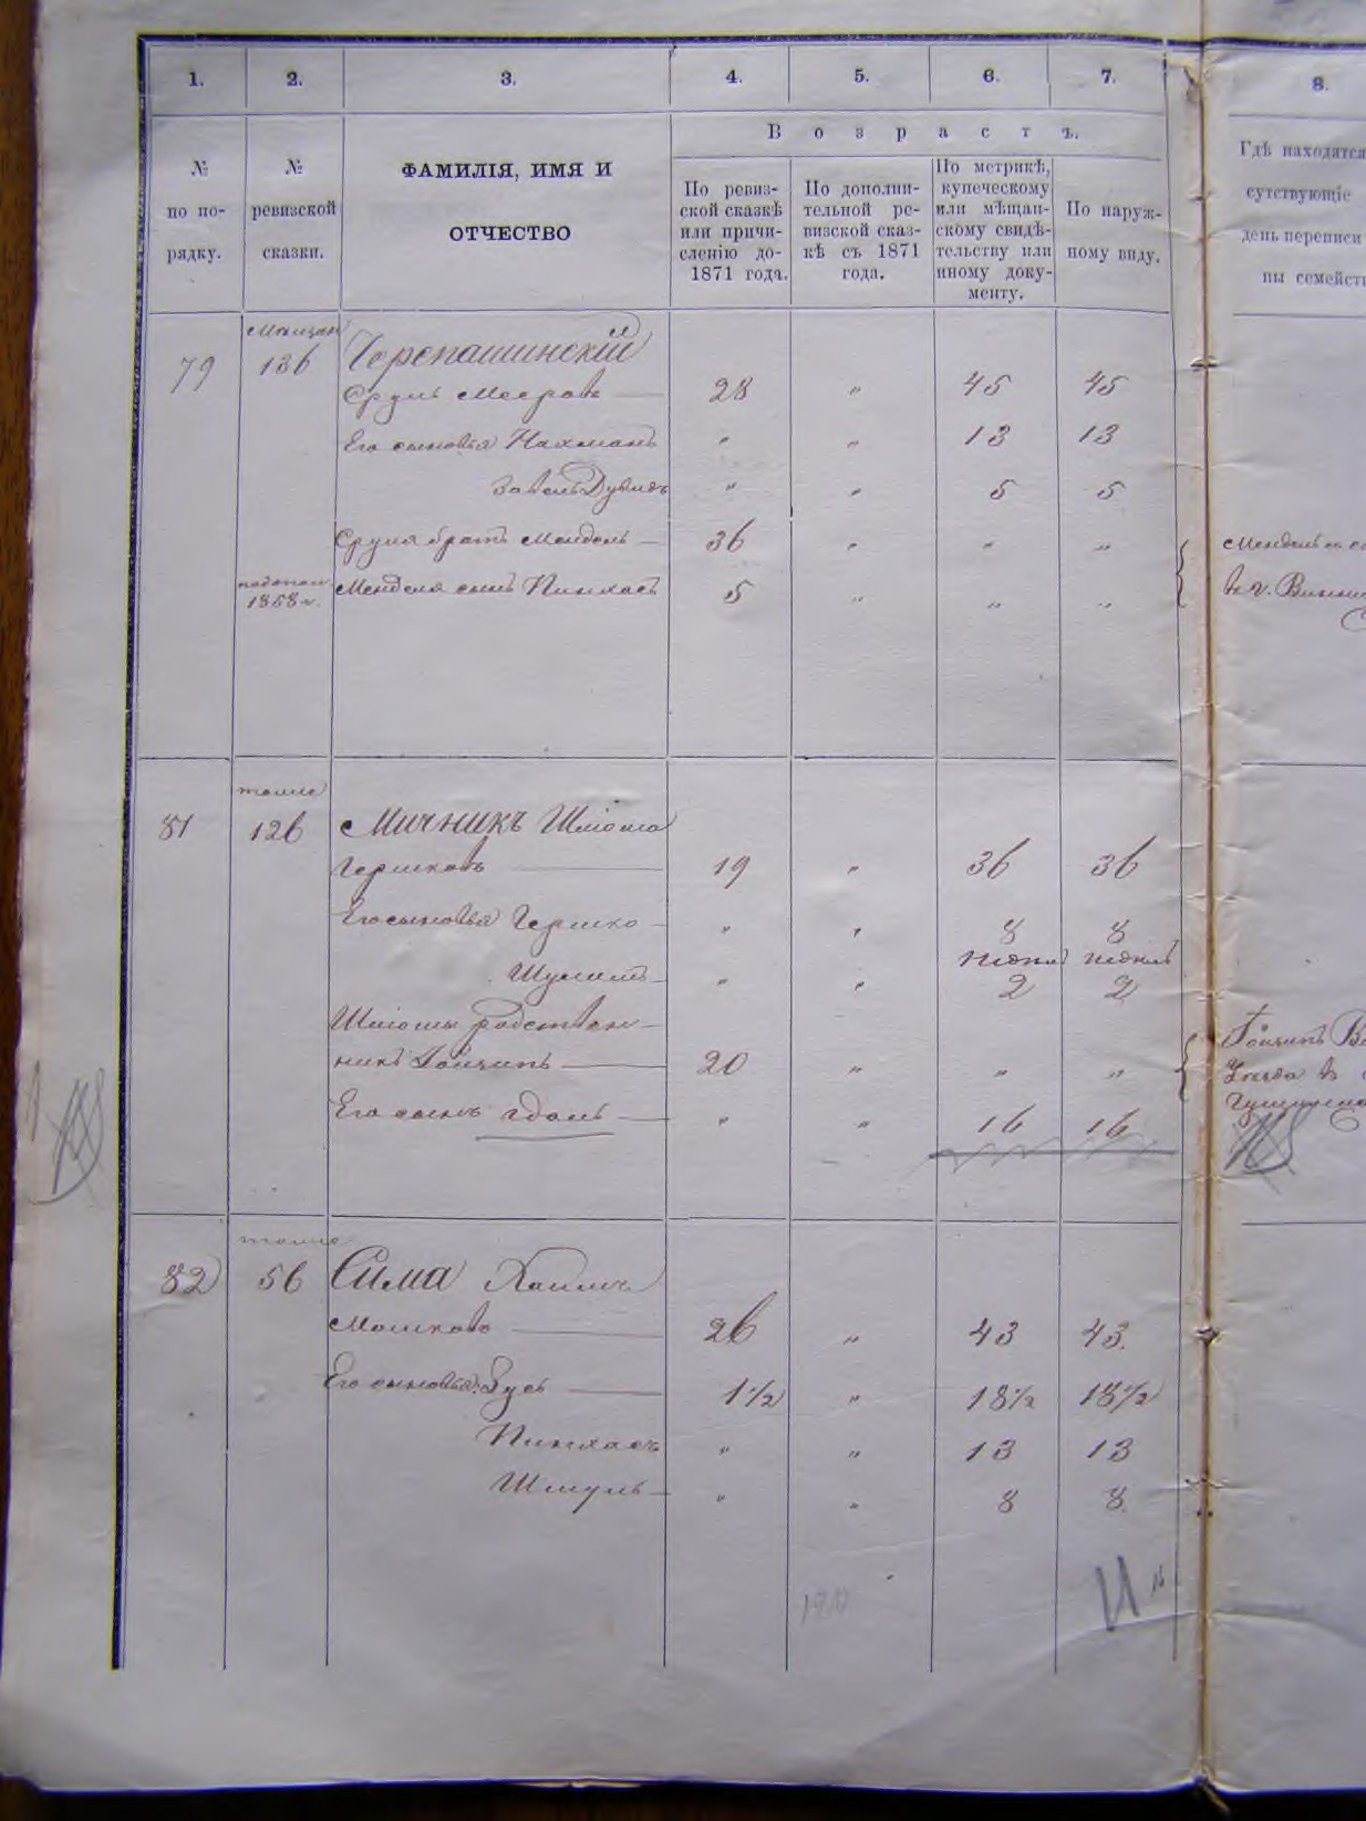 1. 2. 3. 4. 5. 6. 7. 8.
В о з р а с т ъ.
№ по по-рядку.
№ ревизской сказки.
ФАМИЛІЯ, ИМЯ И
ОТЧЕСТВО
По ревиз-
ской сказкѣ
или причи-
сленію до-
1871 года.
По дополни-
тельной ре-
визской сказ-
кѣ съ 1871
года.
По метрикѣ,
купеческому
или мѣщан-
скому свидѣ-
тельству или
иному доку-
менту.
По наруж-
ному виду.
Гдѣ находятся
сутствующіе
день переписи
ны семейст
мѣщан
79 136 Черепашинскій
Сруль Мееровъ 28 " 45 45
Его сыновья Нахманъ " " 13 13
Завель Дувидъ " " 5 5
Сруля братъ Мендель 36 " " "
1858 г. Менделя сынъ Пинхасъ 5 " " "
Мендель
въ г. Винни
тоже
81 126 Мичникъ Шліома
Гершковъ 19 " 36 36
Его сыновья Гершко " " 8 8
" " 2 2
Шліомы родствен-
никъ 20 " " "
Его сынъ " " 16 16
тоже
82 56 Сима Хаимъ
Мошковъ 26 " 43 43.
Его сыновья: Зусь 1½ " 18½ 18½
Пинхасъ " " 13 13
Шмуль " " 8 8.